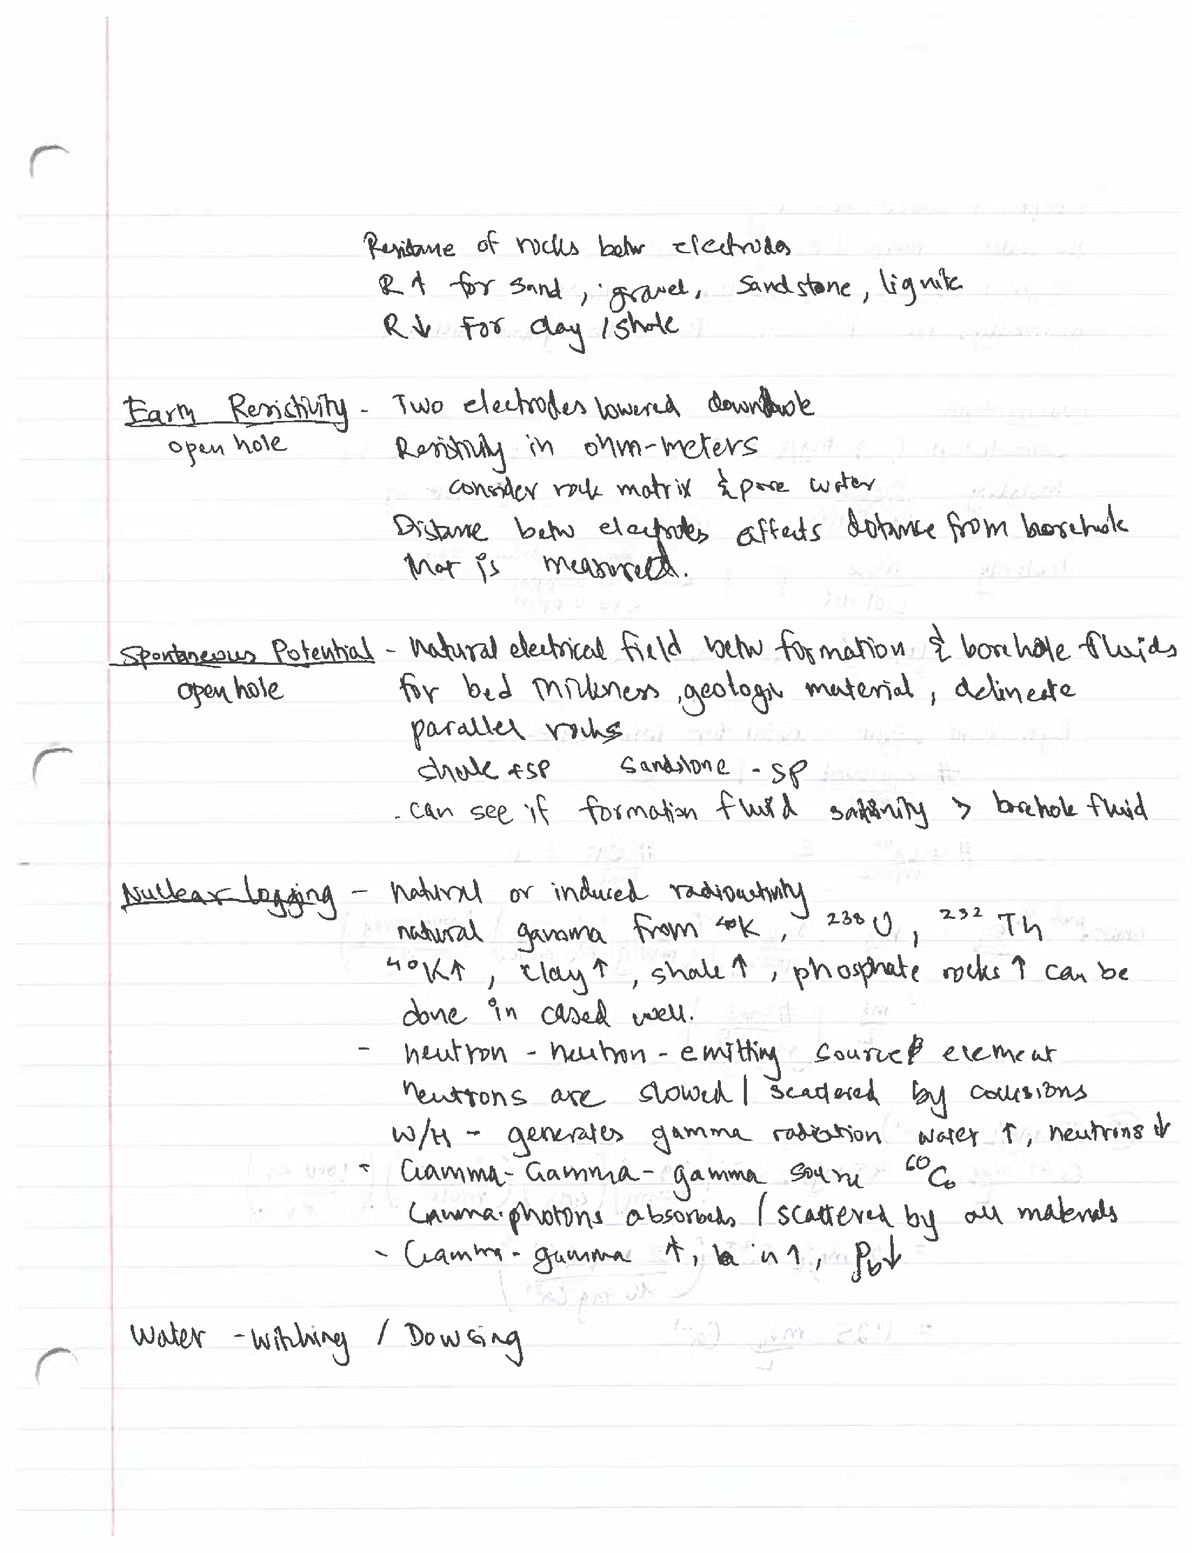 Resistance of rocks betw electrodes
R ↑ for sand, gravel, sandstone, lignite
R ↓ for clay / shale
Earth Resistivity - Two electrodes lowered downhole
open hole Resistivity in ohm-meters
consider rock matrix & pore water
Distance betw electrodes affects distance from borehole
that is measured.
Spontaneous Potential - natural electrical field betw formation & borehole fluids
open hole for bed thickness, geologic material, delineate
parallel rocks
shale +SP sandstone - SP
. can see if formation fluid salinity > borehole fluid
Nuclear Logging - natural or induced radioactivity
natural gamma from ⁴⁰K, ²³⁸U, ²³²Th
⁴⁰K↑, clay↑, shale↑, phosphate rocks ↑ can be
done in cased well.
- neutron - neutron - emitting source element
neutrons are slowed / scattered by collisions
w/H - generates gamma radiation water ↑, neutrons ↓
- Gamma-Gamma - gamma source ⁶⁰Co
Gamma-photons absorbed / scattered by all materials
- Gamma-gamma ↑, n↑, ρb↓
Water - witching / Dowsing